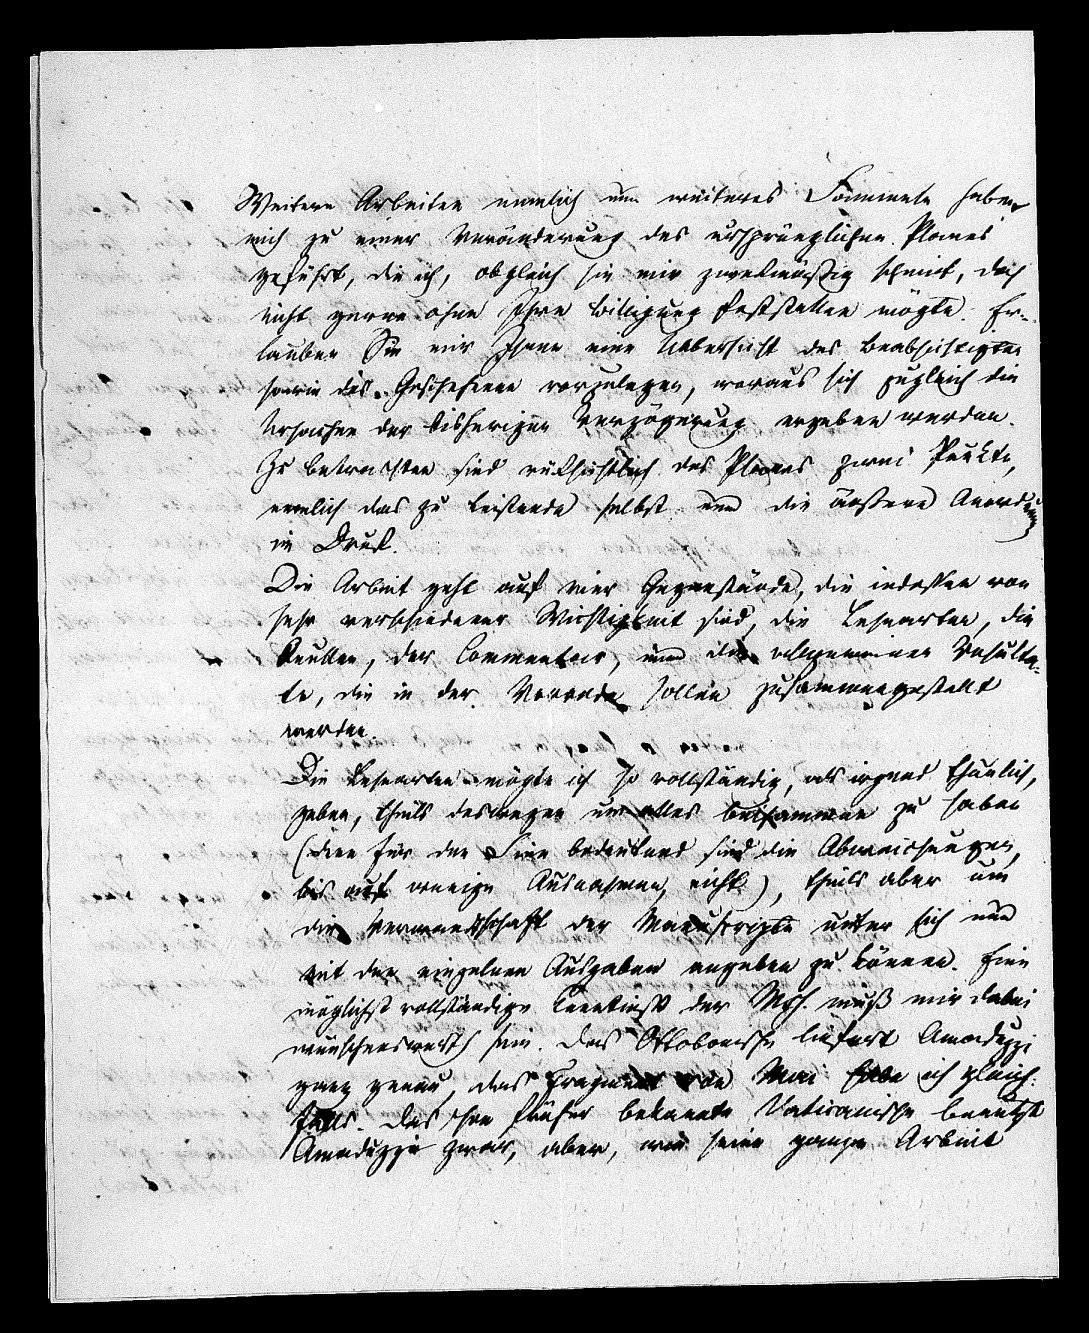 Weitere Arbeiten nemlich und weiteres Sammeln haben
mich zu einer Veränderung des ursprünglichen Planes
geführt, die ich, obgleich sie mir zwekmäßig scheint, doch
nicht gerne ohne Ihre Billigung feststellen mögte. Er-
lauben Sie mir Ihnen eine Uebersicht des Beabsichtigten
sowie des Geschehenen vorzulegen, woraus sich zugleich die
Ursachen der bisherigen Verzögerung ergeben werden.
Zu betrachten sind rücksichtlich des Planes zwei Punkte,
nemlich das zu Leistende selbst und die äußere Anordnung
im Druck.
Die Arbeit geht auf vier Gegenstände, die indessen von
sehr verschiedener Wichtigkeit sind, die Lesearten, die
Quellen, der Commentar, und die allgemeinen Resulta-
te, die in der Vorrede sollen zusammengestellt
werden.
Die Lesearten mögte ich so vollständig, als irgend thunlich,
geben, theils deswegen um alles beisammen zu haben
(denn für den Sinn bedeutend sind die Abweichungen,
bis auf wenige Ausnahmen, nicht), theils aber um
die Verwandtschaft der Manuscripte unter sich und
mit den einzelnen Ausgaben angeben zu können. Eine
möglichst vollständige Kenntniß der Mss. muß mir dabei
wünschenswerth sein. Das Ottobonische liefert Amaduzzi
ganz genau, das Fragment von Mai habe ich gleich-
falls. Das schon früher bekannte Vaticanische benutzt
Amaduzzi zwar, aber, wie seine ganze Arbeit